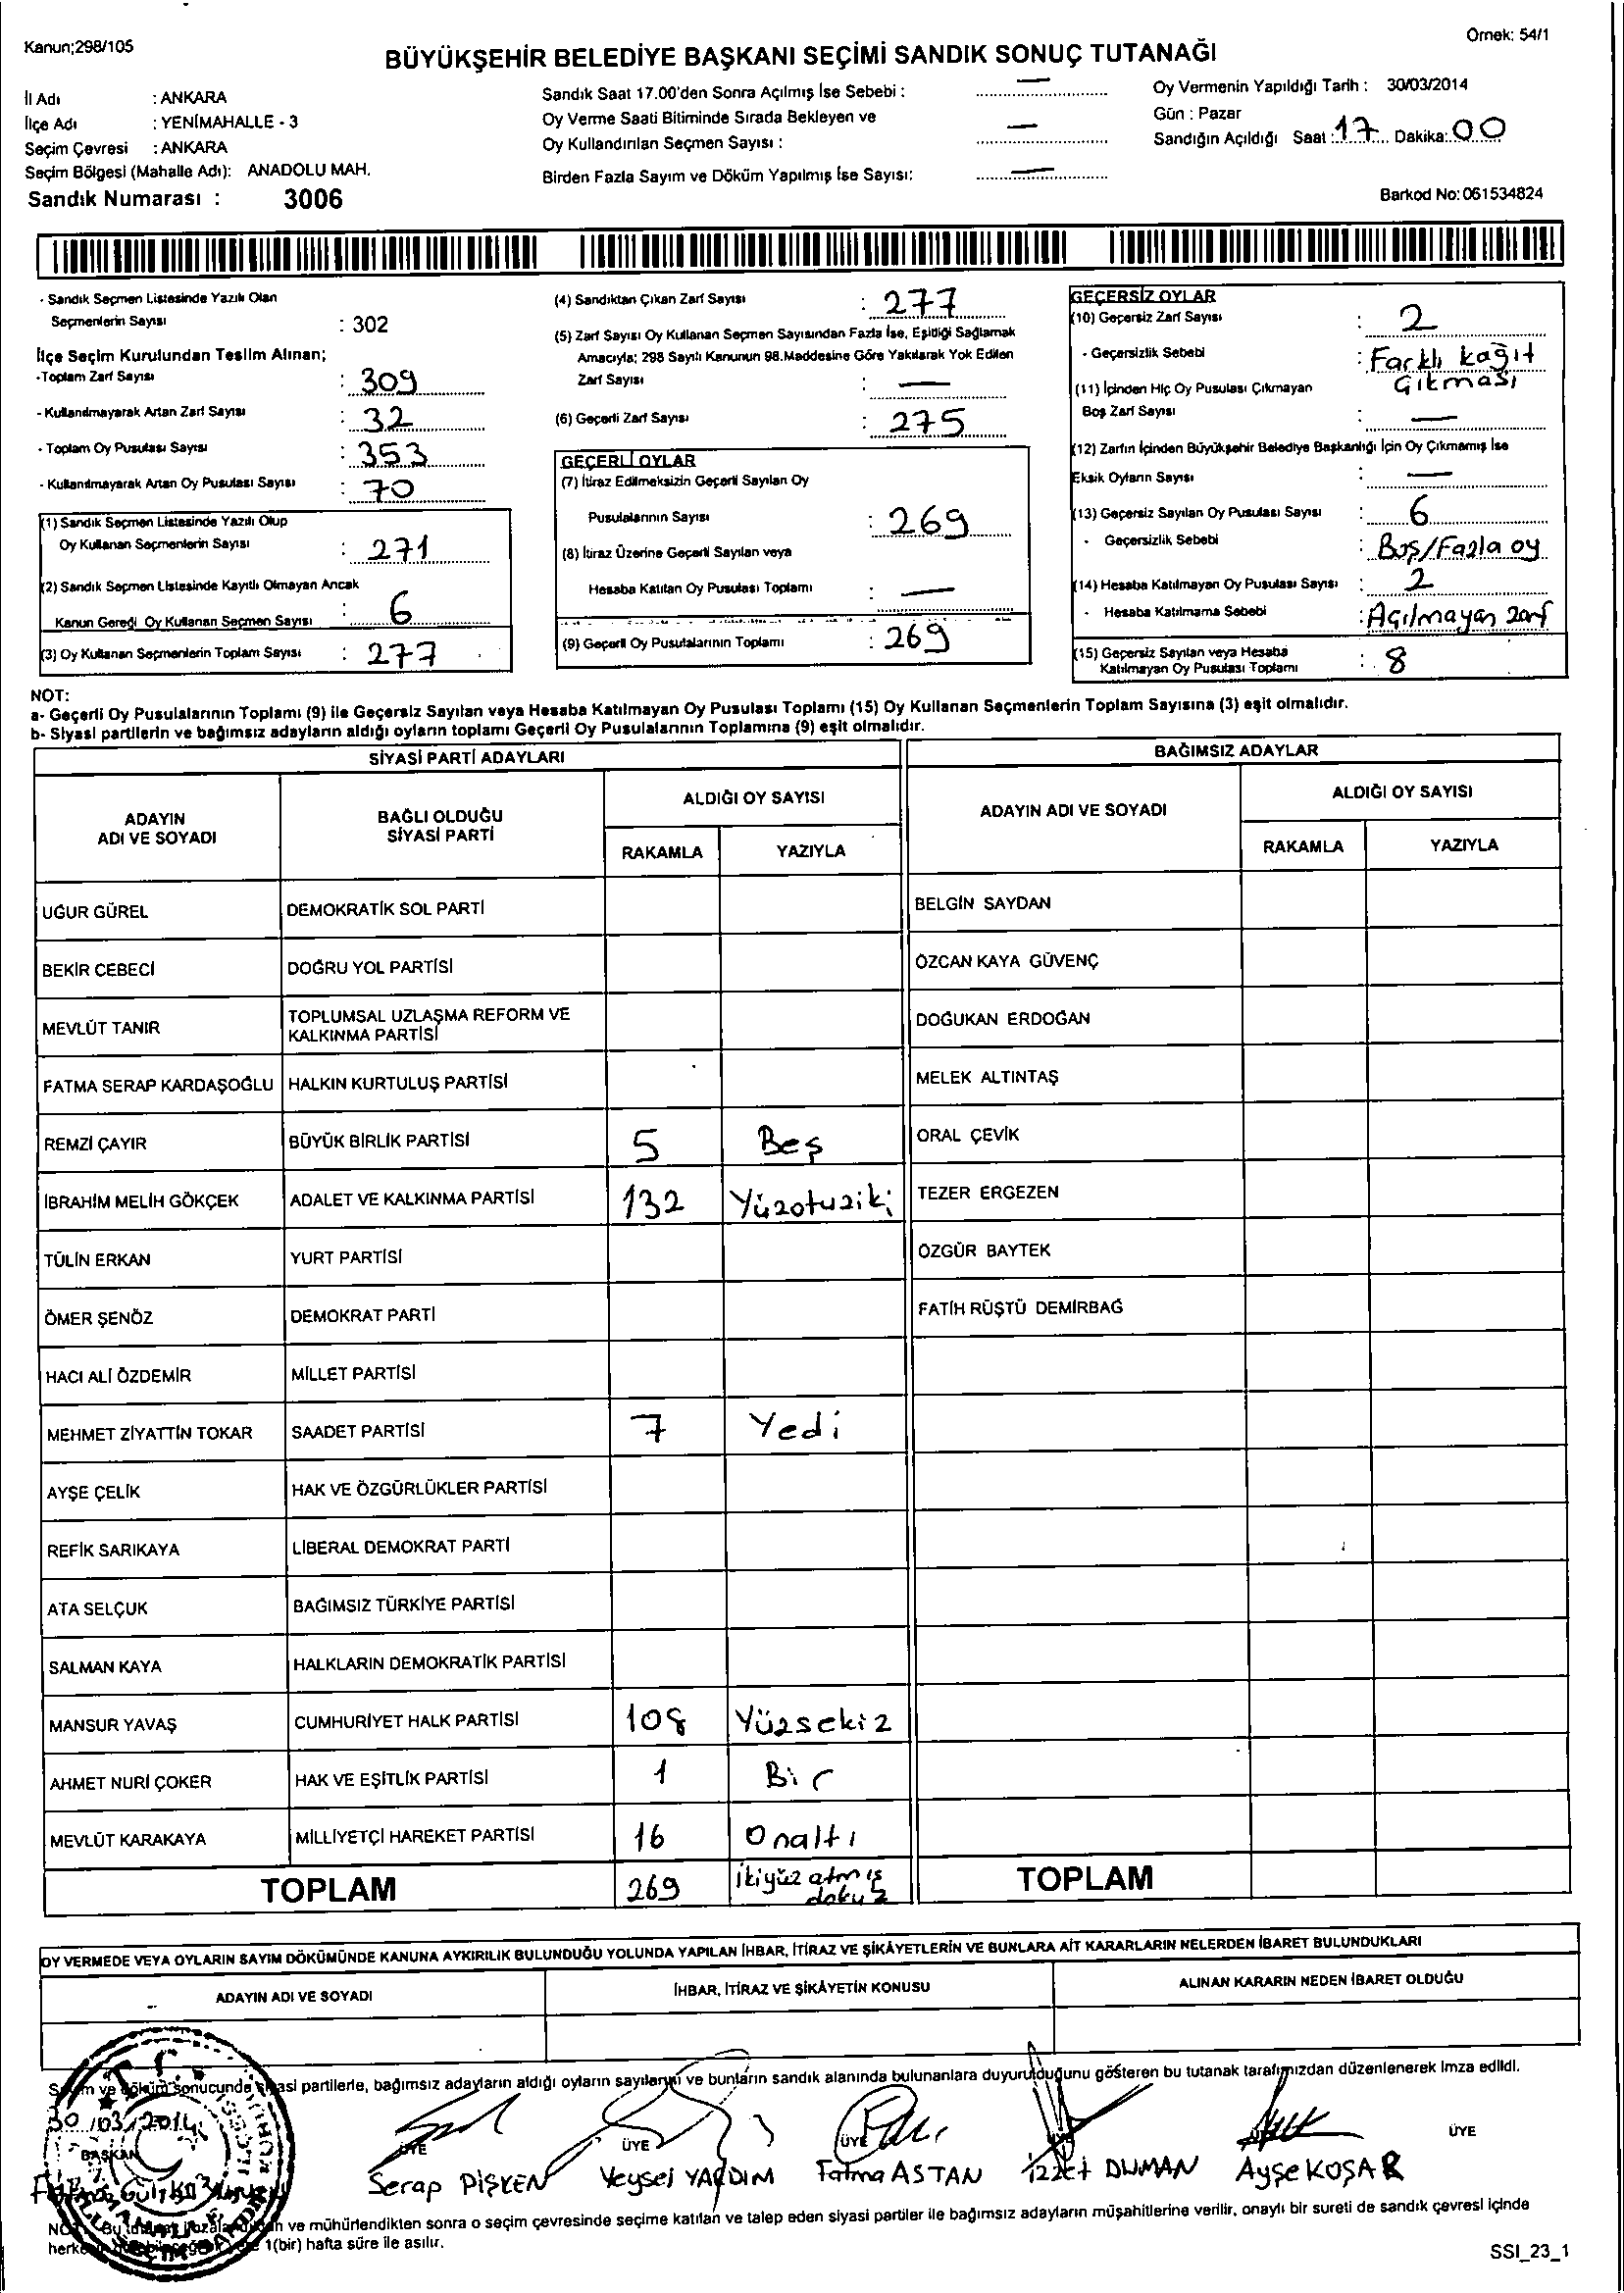 Kanun;298/105
Örnek: 54/1
BÜYÜKŞEHİR BELEDİYE BAŞKANI SEÇİMİ SANDIK SONUÇ TUTANAĞI
İl Adı : ANKARA
İlçe Adı : YENİMAHALLE - 3
Seçim Çevresi : ANKARA
Seçim Bölgesi (Mahalle Adı): ANADOLU MAH.
Sandık Numarası : 3006
Sandık Saat 17.00'den Sonra Açılmış İse Sebebi : —
Oy Verme Saati Bitiminde Sırada Bekleyen ve
Oy Kullandırılan Seçmen Sayısı : —
Birden Fazla Sayım ve Döküm Yapılmış İse Sayısı: —
Oy Vermenin Yapıldığı Tarih : 30/03/2014
Gün : Pazar
Sandığın Açıldığı Saat : 17 Dakika: 00
Barkod No: 061534824
- Sandık Seçmen Listesinde Yazılı Olan
Seçmenlerin Sayısı : 302
İlçe Seçim Kurulundan Teslim Alınan;
-Toplam Zarf Sayısı : 309
- Kullanılmayarak Artan Zarf Sayısı : 32
- Toplam Oy Pusulası Sayısı : 353
- Kullanılmayarak Artan Oy Pusulası Sayısı : 70
(1) Sandık Seçmen Listesinde Yazılı Olup
Oy Kullanan Seçmenlerin Sayısı : 271
(2) Sandık Seçmen Listesinde Kayıtlı Olmayan Ancak
Kanun Gereği Oy Kullanan Seçmen Sayısı : 6
(3) Oy Kullanan Seçmenlerin Toplam Sayısı : 277
(4) Sandıktan Çıkan Zarf Sayısı : 277
(5) Zarf Sayısı Oy Kullanan Seçmen Sayısından Fazla İse, Eşitliği Sağlamak
Amacıyla; 298 Sayılı Kanunun 98.Maddesine Göre Yakılarak Yok Edilen
Zarf Sayısı : —
(6) Geçerli Zarf Sayısı : 275
GEÇERLİ OYLAR
(7) İtiraz Edilmeksizin Geçerli Sayılan Oy
Pusulalarının Sayısı : 269
(8) İtiraz Üzerine Geçerli Sayılan veya
Hesaba Katılan Oy Pusulası Toplamı : —
(9) Geçerli Oy Pusulalarının Toplamı : 269
GEÇERSİZ OYLAR
(10) Geçersiz Zarf Sayısı : 2
- Geçersizlik Sebebi : Farklı kağıt
çıkması
(11) İçinden Hiç Oy Pusulası Çıkmayan
Boş Zarf Sayısı : —
(12) Zarfın İçinden Büyükşehir Belediye Başkanlığı İçin Oy Çıkmamış İse
Eksik Oyların Sayısı : —
(13) Geçersiz Sayılan Oy Pusulası Sayısı : 6
- Geçersizlik Sebebi : Boş/Fazla oy
(14) Hesaba Katılmayan Oy Pusulası Sayısı : 2
- Hesaba Katılmama Sebebi : Açılmayan zarf
(15) Geçersiz Sayılan veya Hesaba
Katılmayan Oy Pusulası Toplamı : 8
NOT:
a- Geçerli Oy Pusulalarının Toplamı (9) ile Geçersiz Sayılan veya Hesaba Katılmayan Oy Pusulası Toplamı (15) Oy Kullanan Seçmenlerin Toplam Sayısına (3) eşit olmalıdır.
b- Siyasi partilerin ve bağımsız adayların aldığı oyların toplamı Geçerli Oy Pusulalarının Toplamına (9) eşit olmalıdır.
SİYASİ PARTİ ADAYLARI
ADAYIN
ADI VE SOYADI
BAĞLI OLDUĞU
SİYASİ PARTİ
ALDIĞI OY SAYISI
RAKAMLA YAZIYLA
UĞUR GÜREL DEMOKRATİK SOL PARTİ
BEKİR CEBECİ DOĞRU YOL PARTİSİ
MEVLÜT TANIR TOPLUMSAL UZLAŞMA REFORM VE
KALKINMA PARTİSİ
FATMA SERAP KARDAŞOĞLU HALKIN KURTULUŞ PARTİSİ
REMZİ ÇAYIR BÜYÜK BİRLİK PARTİSİ 5 Beş
İBRAHİM MELİH GÖKÇEK ADALET VE KALKINMA PARTİSİ 132 Yüzotuziki
TÜLİN ERKAN YURT PARTİSİ
ÖMER ŞENÖZ DEMOKRAT PARTİ
HACI ALİ ÖZDEMİR MİLLET PARTİSİ
MEHMET ZİYATTİN TOKAR SAADET PARTİSİ 7 Yedi
AYŞE ÇELİK HAK VE ÖZGÜRLÜKLER PARTİSİ
REFİK SARIKAYA LİBERAL DEMOKRAT PARTİ
ATA SELÇUK BAĞIMSIZ TÜRKİYE PARTİSİ
SALMAN KAYA HALKLARIN DEMOKRATİK PARTİSİ
MANSUR YAVAŞ CUMHURİYET HALK PARTİSİ 108 Yüzsekiz
AHMET NURİ ÇOKER HAK VE EŞİTLİK PARTİSİ 1 Bir
MEVLÜT KARAKAYA MİLLİYETÇİ HAREKET PARTİSİ 16 Onaltı
TOPLAM 269 İkiyüz atmış
dokuz
BAĞIMSIZ ADAYLAR
ADAYIN ADI VE SOYADI
ALDIĞI OY SAYISI
RAKAMLA YAZIYLA
BELGİN SAYDAN
ÖZCAN KAYA GÜVENÇ
DOĞUKAN ERDOĞAN
MELEK ALTINTAŞ
ORAL ÇEVİK
TEZER ERGEZEN
ÖZGÜR BAYTEK
FATİH RÜŞTÜ DEMİRBAĞ
TOPLAM
OY VERMEDE VEYA OYLARIN SAYIM DÖKÜMÜNDE KANUNA AYKIRILIK BULUNDUĞU YOLUNDA YAPILAN İHBAR, İTİRAZ VE ŞİKÂYETLERİN VE BUNLARA AİT KARARLARIN NELERDEN İBARET BULUNDUKLARI
ADAYIN ADI VE SOYADI
İHBAR, İTİRAZ VE ŞİKÂYETİN KONUSU
ALINAN KARARIN NEDEN İBARET OLDUĞU
Sayım ve döküm sonucunda siyasi partilerle, bağımsız adayların aldığı oyların sayılarını ve bunların sandık alanında bulunanlara duyurulduğunu gösteren bu tutanak tarafımızdan düzenlenerek imza edildi.
30/03/2014
BAŞKAN ÜYE ÜYE ÜYE ÜYE ÜYE
Serap PİŞKEN Veysel YARDIM Fatma ASTAN İzzet DUMAN Ayşe KOŞAR
ve mühürlendikten sonra o seçim çevresinde seçime katılan ve talep eden siyasi partiler ile bağımsız adayların müşahitlerine verilir, onaylı bir sureti de sandık çevresi içinde
1(bir) hafta süre ile asılır.
SSI_23_1